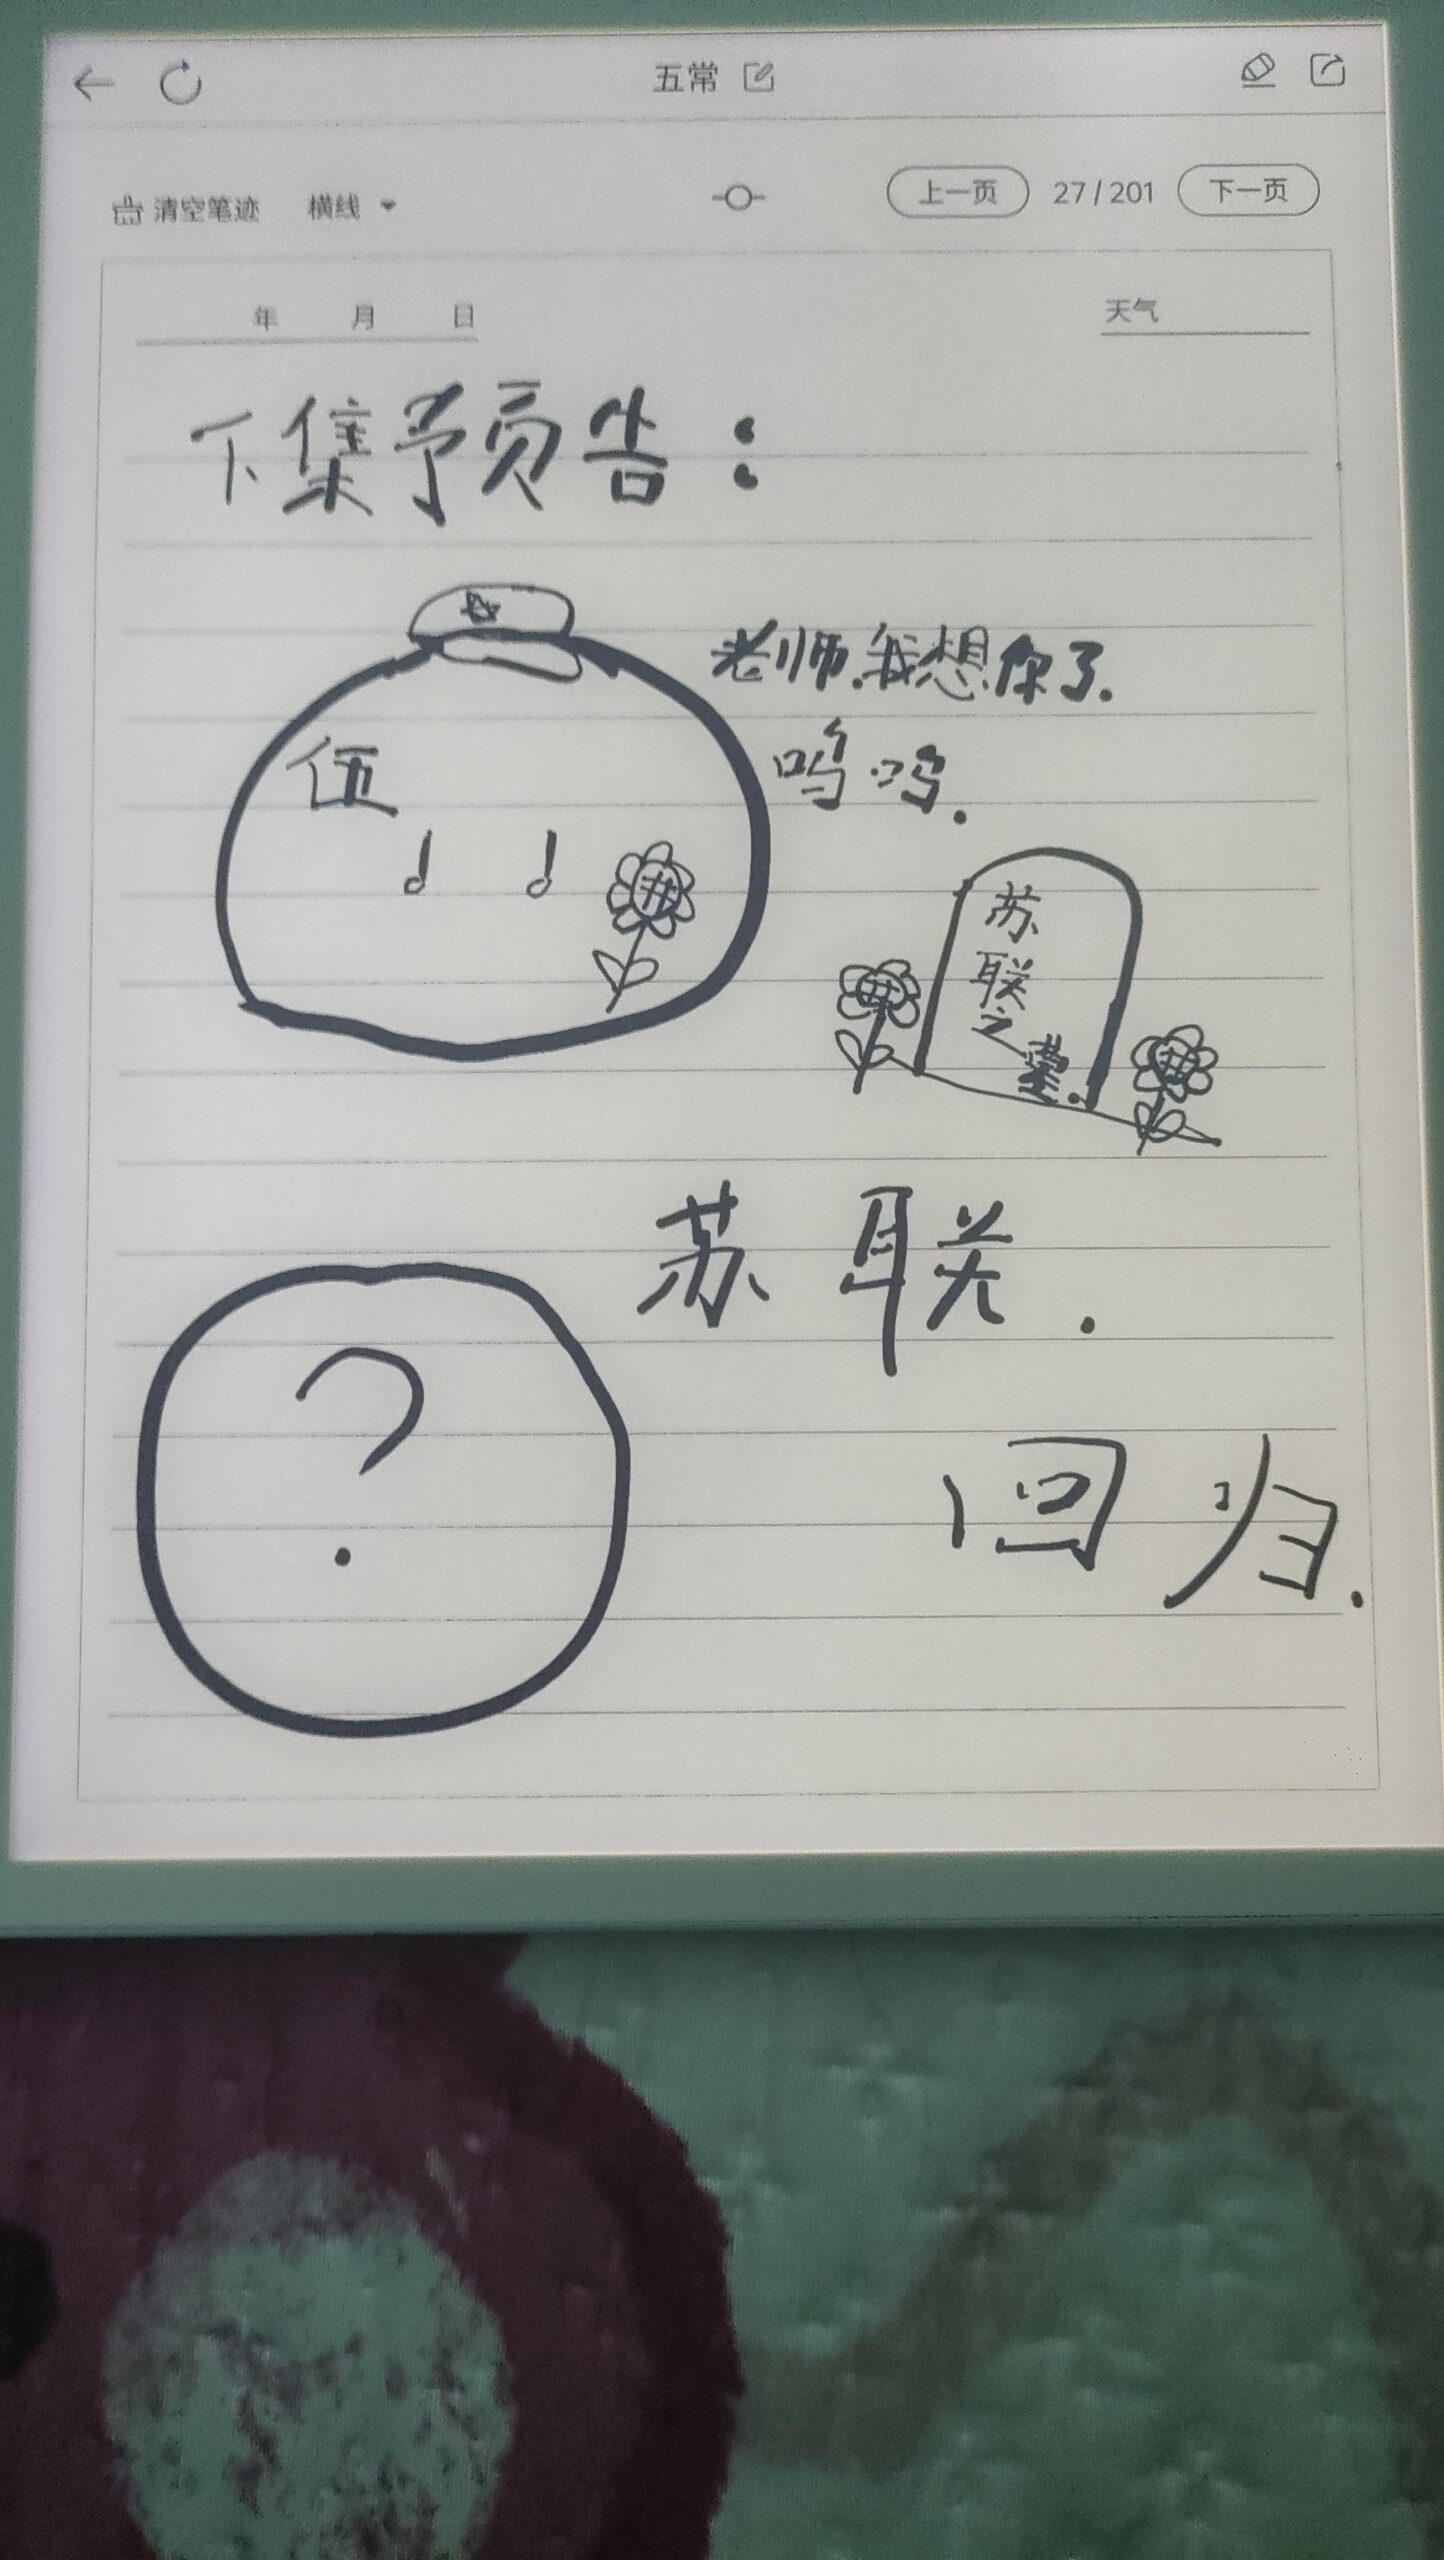 五常
清空笔迹 横线 上一页 27/201 下一页
年 月 日 天气
下集预告：
老师.我想你了.
呜呜.
伍
苏
联
之
墓.
苏联.
？
回归.